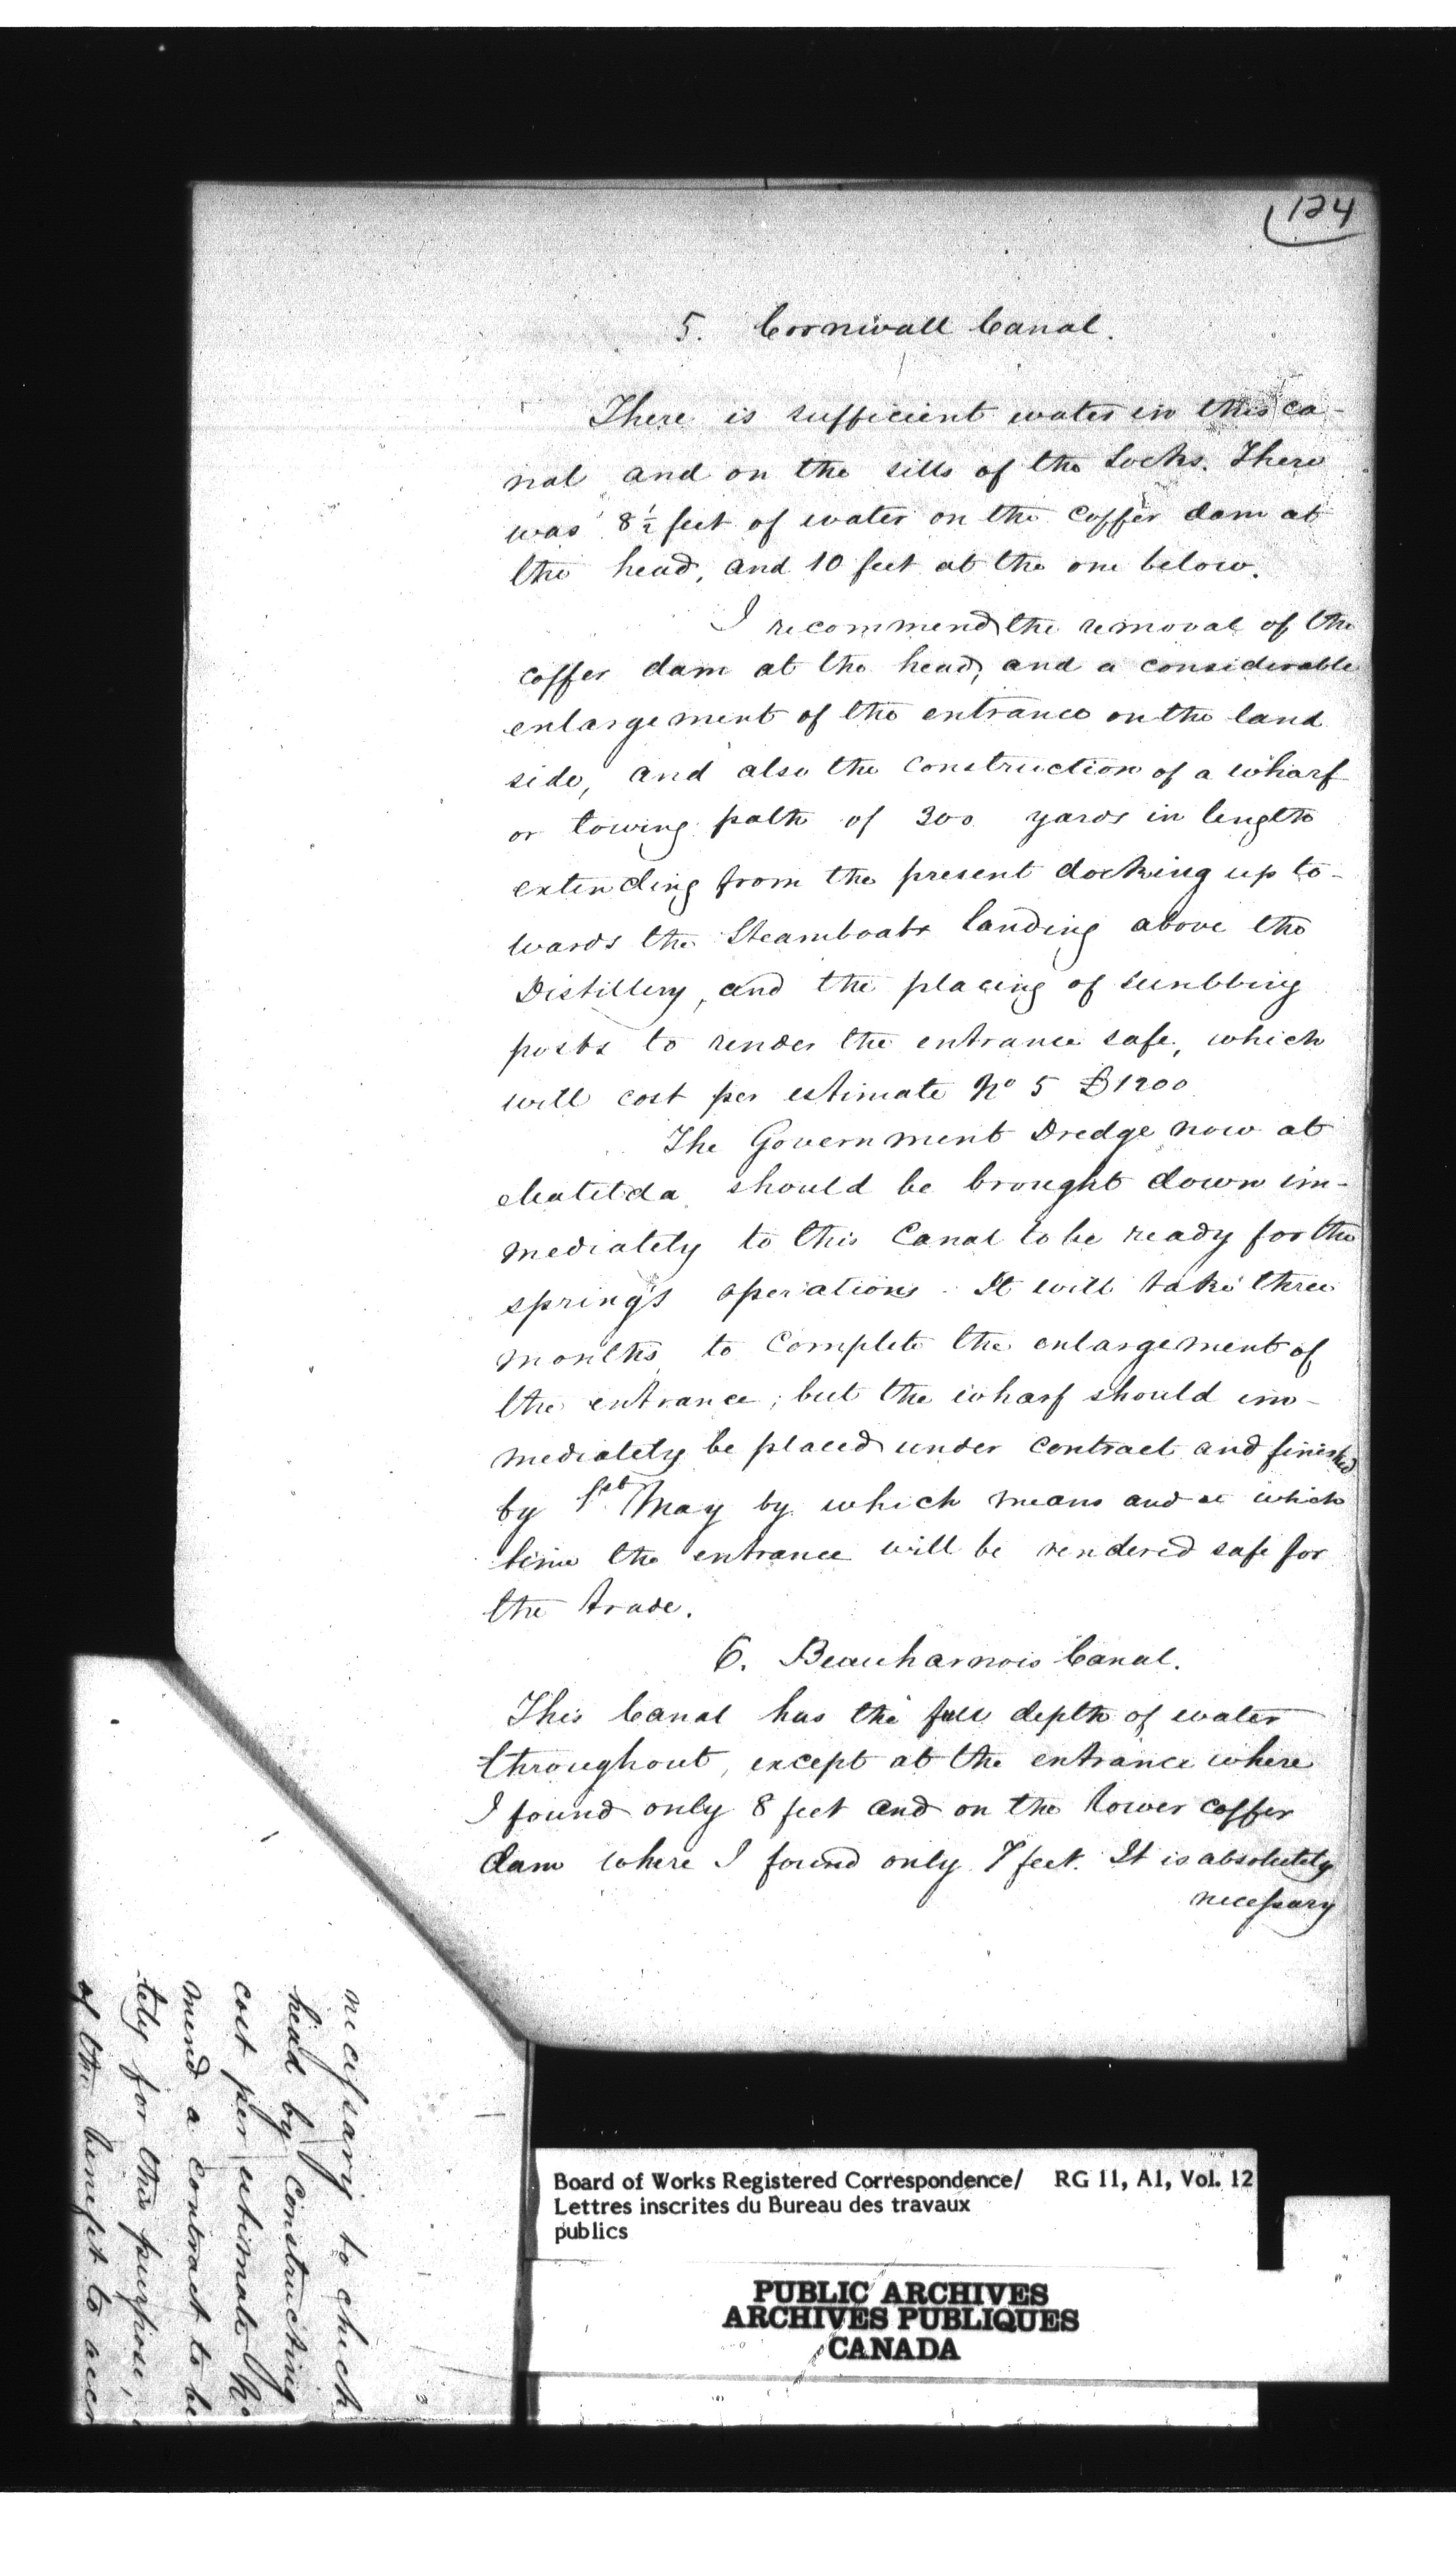 124
5. Cornwall Canal.
There is sufficient water in this ca-
nal and on the sills of the Locks. There
was 8½ feet of water on the coffer dam at
the head, and 10 feet at the one below.
I recommend the removal of the
coffer dam at the head, and a considerable
enlargement of the entrance on the land
side, and also the construction of a wharf
or towing path of 300 yards in length
extending from the present docking up to-
wards the Steamboats landing above the
Distillery, and the placing of snubbing
posts to render the entrance safe, which
will cost per estimate No 5 £1200
The Government Dredge now at
Matilda should be brought down im-
mediately to this Canal to be ready for the
spring's operations. It will take three
months to complete the enlargement of
the entrance; but the wharf should im-
mediately be placed under contract and finished
by 1st May by which means and at which
time the entrance will be rendered safe for
the trade.
6. Beauharnois Canal.
This Canal has the full depth of water
throughout, except at the entrance where
I found only 8 feet and on the lower coffer
dam where I found only 7 feet. It is absolutely
necessary
necessary to check
head by constructing
cost per estimate No
mend a contract to be
tely for this purpose,
of the benefit to
Board of Works Registered Correspondence/ RG 11, A1, Vol. 12
Lettres inscrites du Bureau des travaux
publics
PUBLIC ARCHIVES
ARCHIVES PUBLIQUES
CANADA